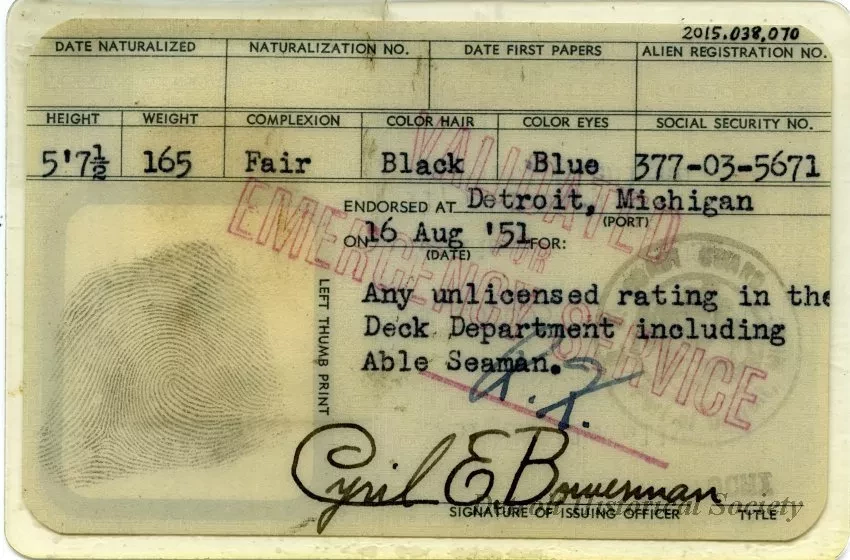 2015.038.070
DATE NATURALIZED NATURALIZATION NO. DATE FIRST PAPERS ALIEN REGISTRATION NO.
HEIGHT WEIGHT COMPLEXION COLOR HAIR COLOR EYES SOCIAL SECURITY NO.
5'7½ 165 Fair Black Blue 377-03-5671
ENDORSED AT Detroit, Michigan
(PORT)
ON 16 Aug '51 FOR:
(DATE)
Any unlicensed rating in the
Deck Department including
Able Seaman.
VALIDATED
FOR
EMERGENCY SERVICE
LEFT THUMB PRINT
Cyril E Bowerman
SIGNATURE OF ISSUING OFFICER TITLE
Historical Society